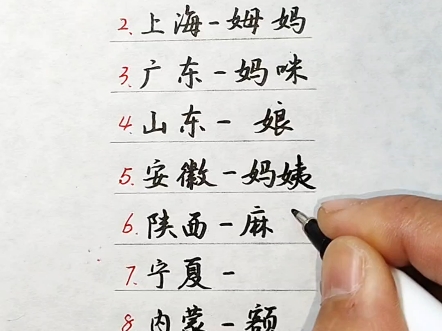 2. 上海-姆妈
3. 广东-妈咪
4. 山东- 娘
5. 安徽-妈姨
6. 陕西-麻
7. 宁夏-
8 内蒙-额